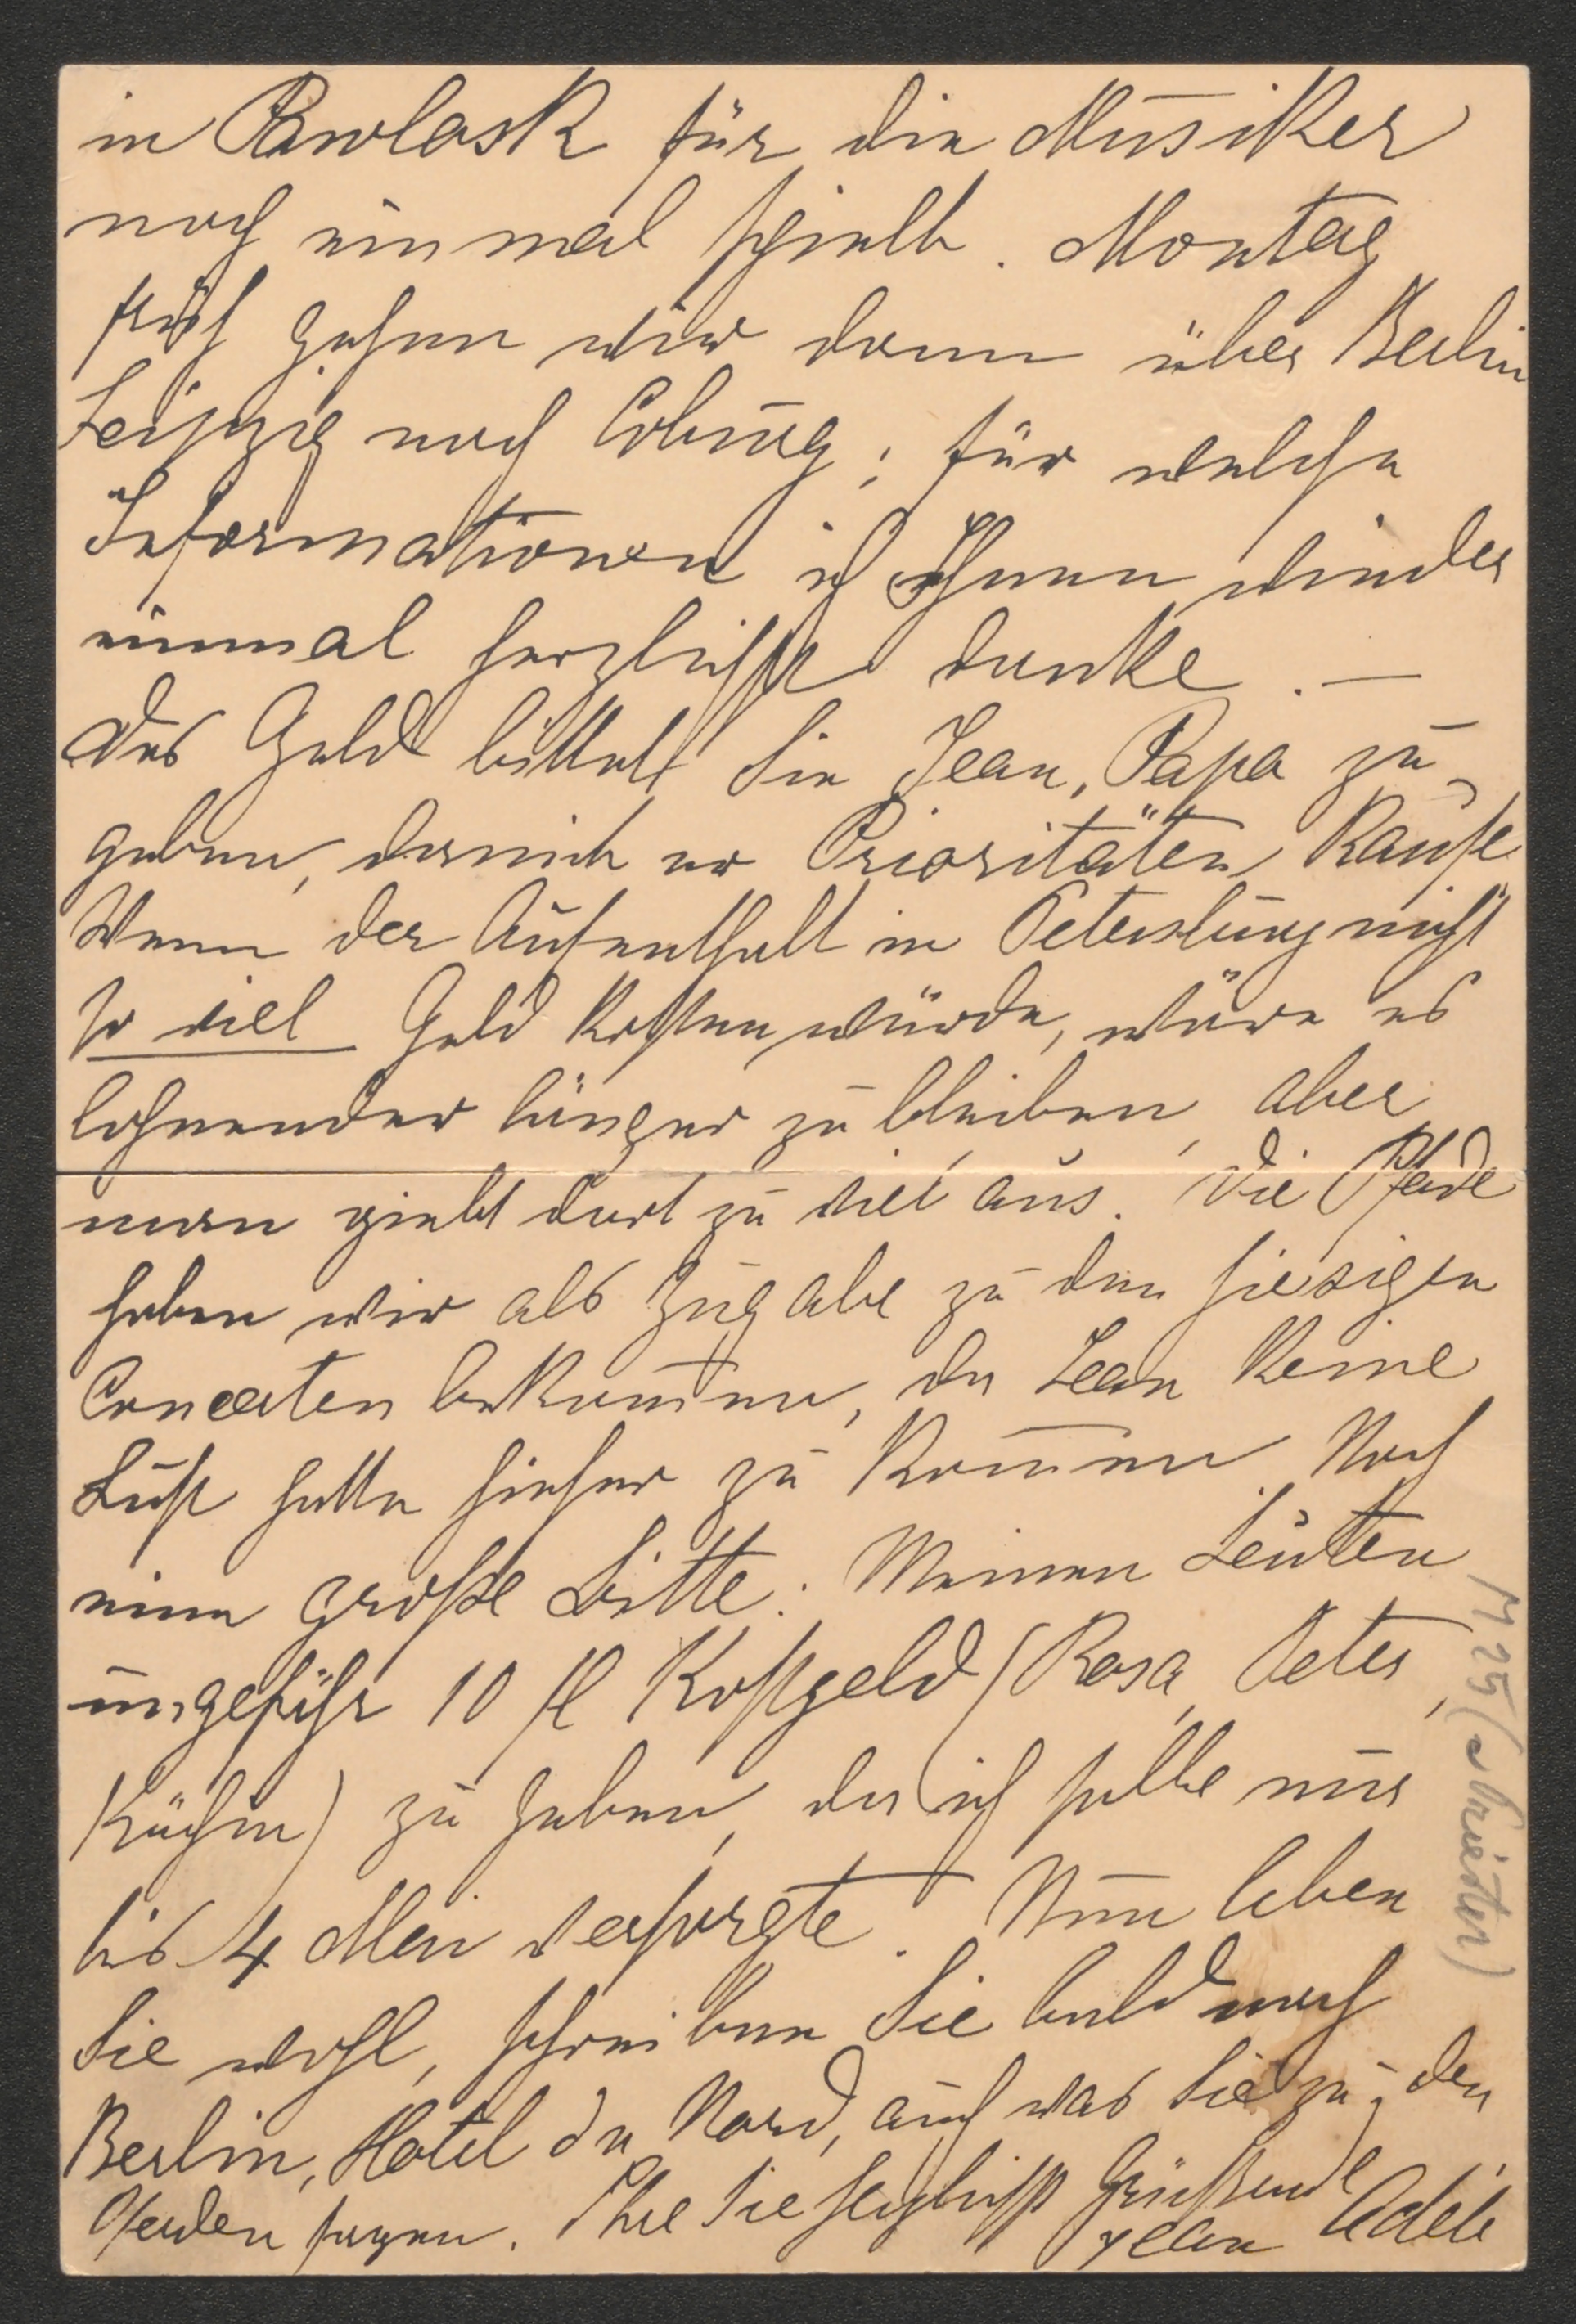 in Pawlosk für die Musiker
noch einmal spielt. Montag
früh gehen wir dann über Berlin
Leipzig nach Coburg; für welche
Informationen ich Ihnen wieder
einmal herzlichst danke. —
Das Geld bittet Sie Jean, Papa zu
geben, damit er Prioritäten kaufe
Wenn der Aufenthalt in Petersburg nicht
so viel Geld kosten würde, wäre es
lohnender länger zu bleiben, aber
man giebt dort zu viel aus. Die Pferde
haben wir als Zugabe zu den hiesigen
Concerten bekommen, da Jean keine
Lust hatte hieher zu kommen. Noch
eine große Bitte: Meinen Leuten
ungefähr 10 fl Kostgeld (Rosa, Peter,
Köchin) zu geben, da ich selbe nur
bis 4 Mai versorgte. Nun leben
Sie wohl, schreiben Sie bald nach
Berlin, Hotel du Nord, auch was Sie zu den
Pferden sagen. Ihre Sie herzlichst Grüßende
Jean Adele
M 25 ( )